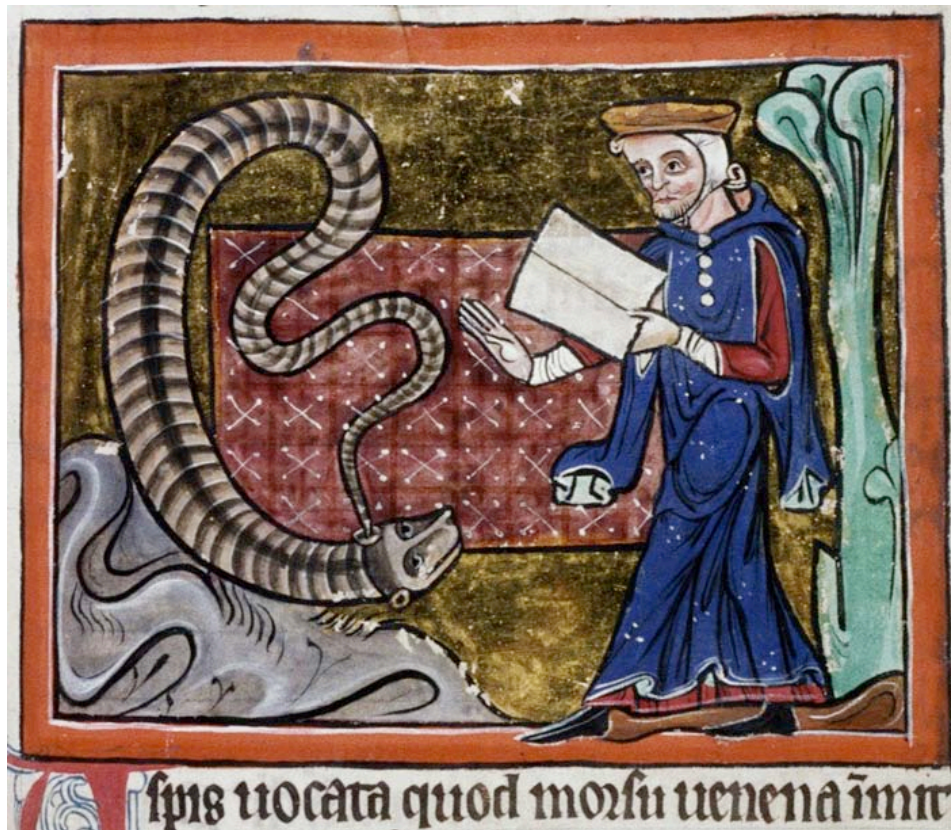 Aspis uocata quod morsu uenena īmit